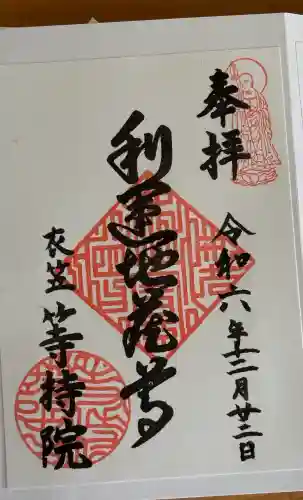 奉拝
令和六年十二月廿二日
利運地蔵尊
衣笠
等持院